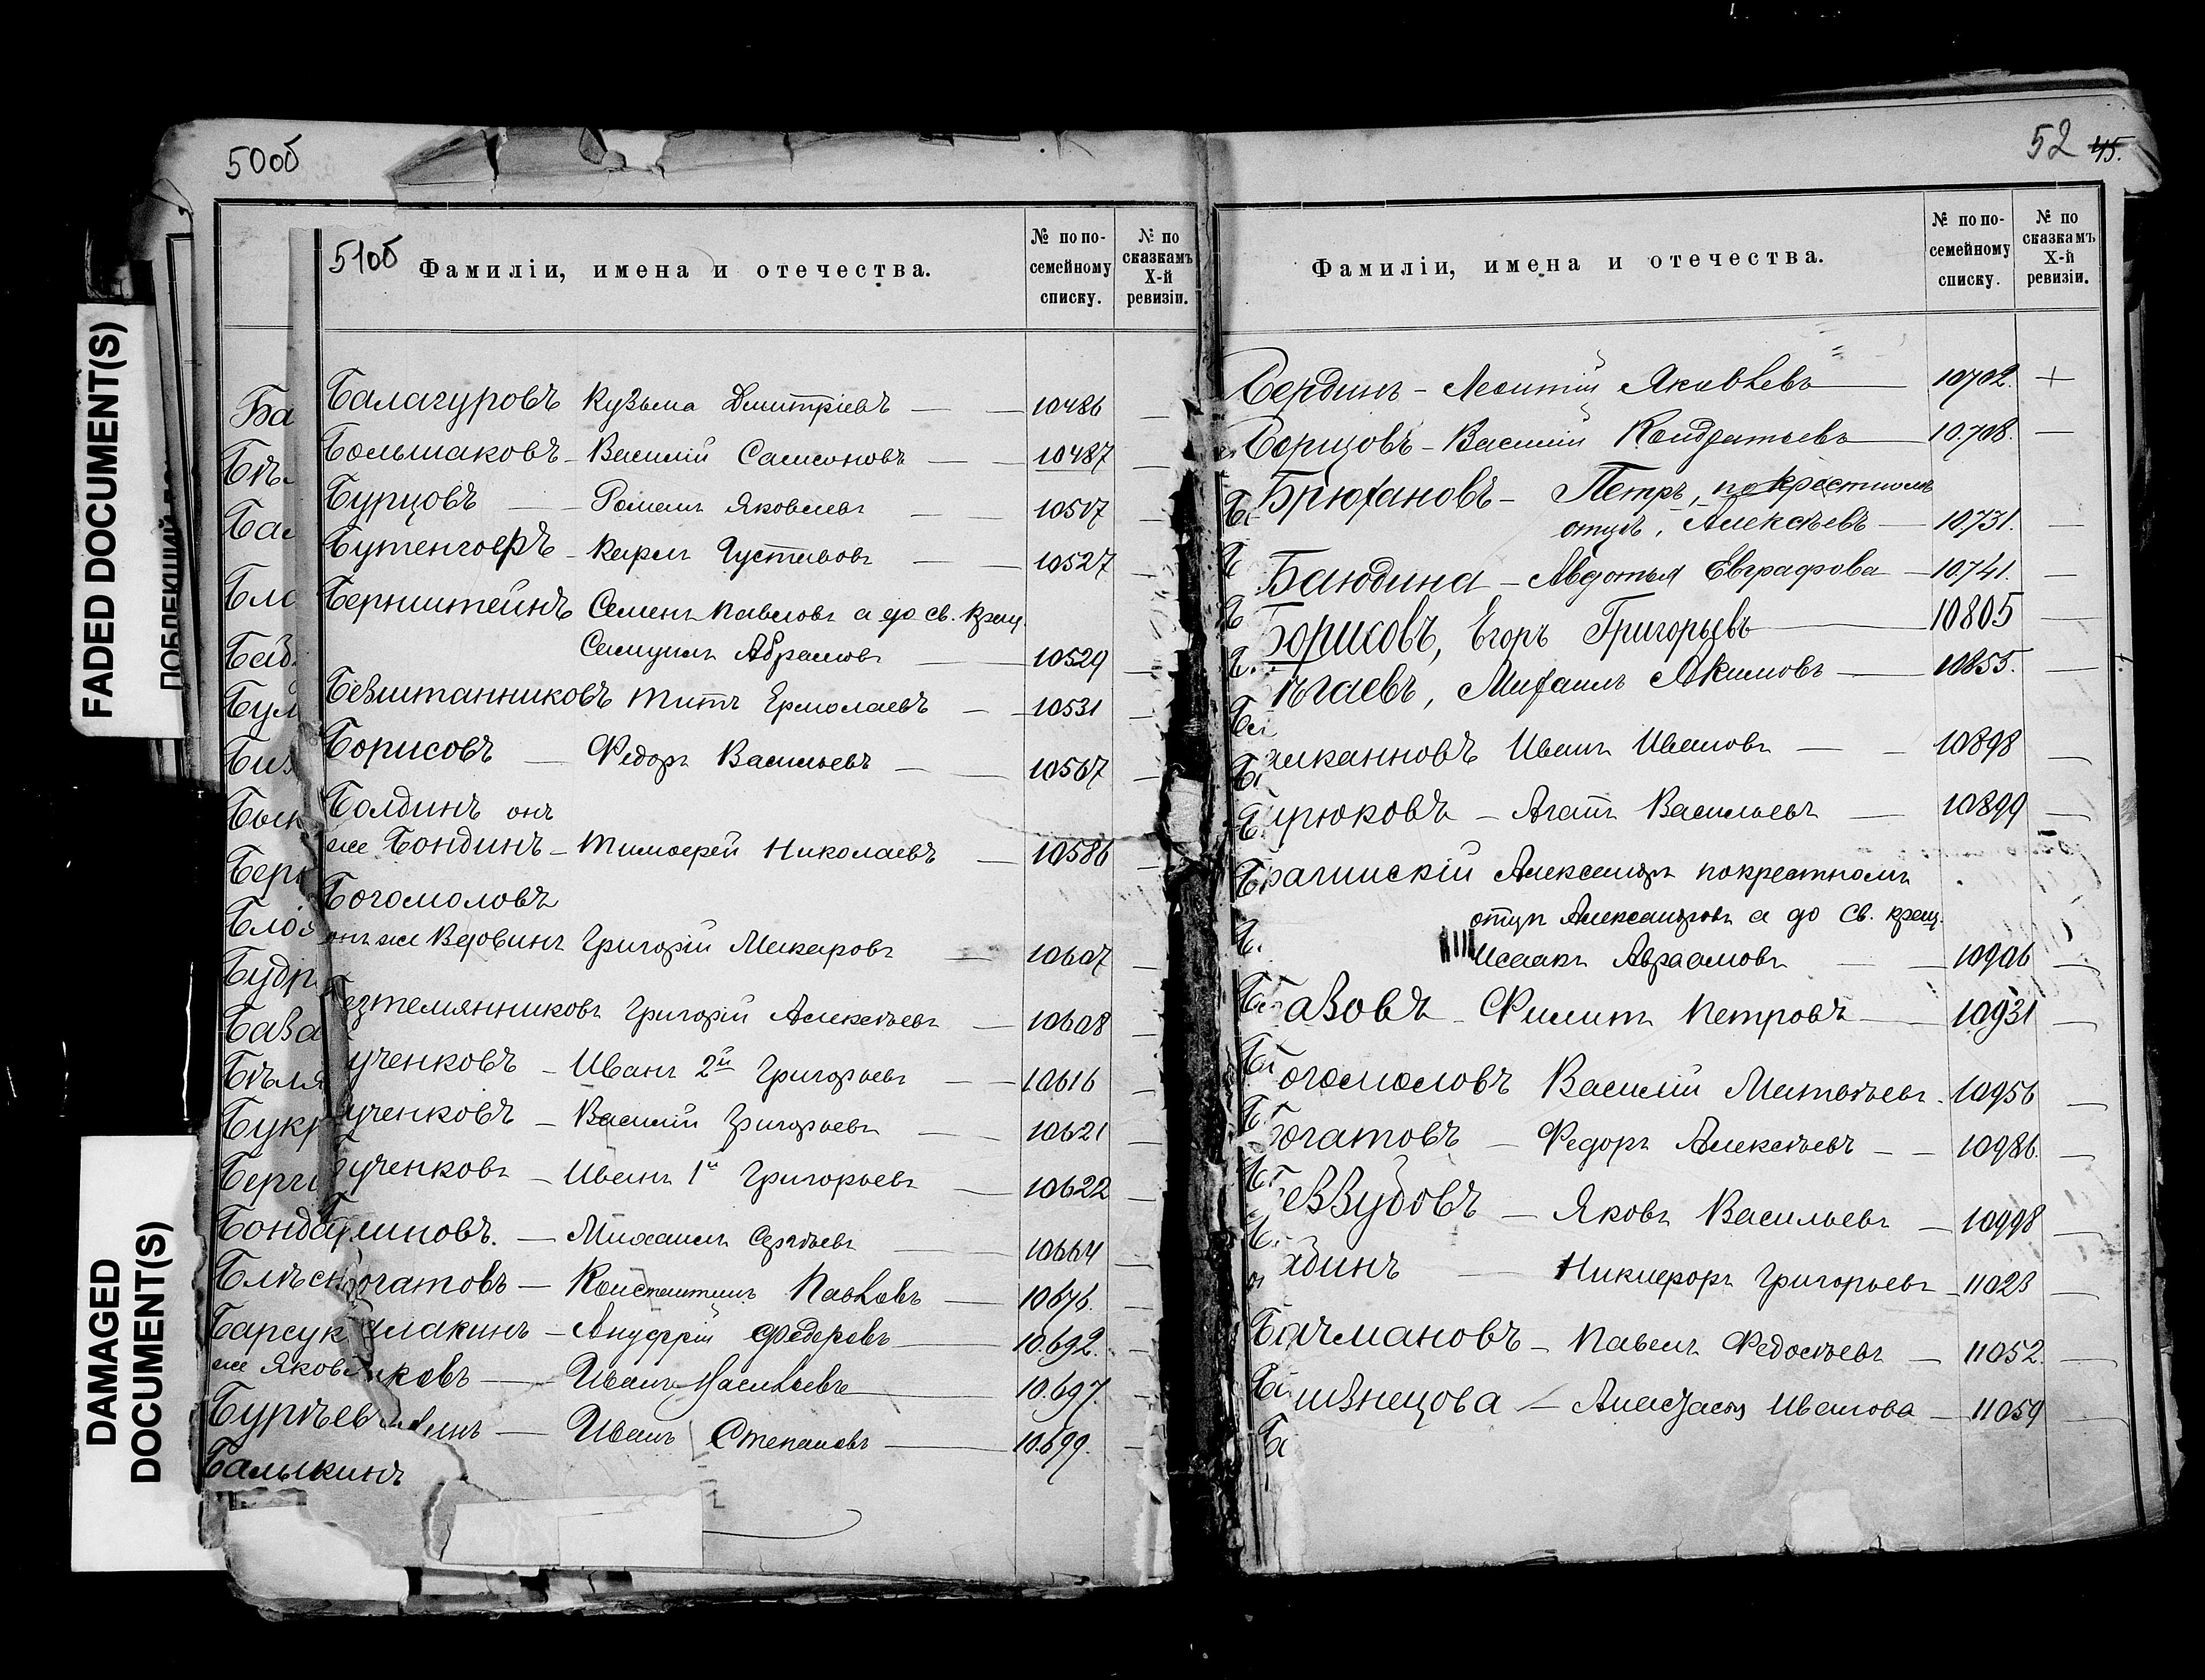 50об
52 45.
FADED DOCUMENT(S)
DAMAGED
DOCUMENT(S)
51об
Фамиліи, имена и отечества.
№ по по-
семейному
списку.
№ по
сказкамъ
X-й
ревизіи.
Балагуровъ Кузьма Дмитріевъ — 10486 —
Большаковъ — Василій Самсоновъ — 10487 —
Бурцовъ — Романъ Яковлевъ — 10517 —
Бутенгофъ — Карлъ Густавовъ — 10527 —
Бернштейнъ Семенъ Павловъ а до св. крещ.
Самуилъ Абрамовъ — 10529 —
Безштанниковъ Титъ Ермолаевъ — 10531 —
Борисовъ — Федоръ Васильевъ — 10567 —
Болдинъ онъ
же Бондинъ — Тимофей Николаевъ — 10586 —
Богомоловъ
онъ же Вдовинъ Григорій Макаровъ — 10607 —
Григорій Алексѣевъ — 10608 —
ученковъ — Иванъ 2й Григорьевъ — 10616 —
ученковъ — Василій Григорьевъ — 10621 —
ученковъ — Иванъ 1й Григорьевъ — 10622 —
Михаилъ Сергѣевъ — 10664 —
огатовъ — Константинъ Павловъ — 10676. —
лакинъ — Ануфрій Федоровъ — 10.692. —
ковъ — Иванъ Васильевъ — 10.697. —
Иванъ Степановъ — 10.699. —
Ба
Бѣл
Бул
Бер
Будр
База
Бѣля
Букр
Барсук
же Яков
Бурѣев
Балыкинъ
Фамиліи, имена и отечества.
№ по по-
семейному
списку.
№ по
сказкамъ
X-й
ревизіи.
Бердинъ — Леонтій Яковлевъ — 10702. +
Борщовъ — Василій Кондратьевъ — 10.708. —
Брюхановъ — Петръ, по крестному
отцу, Алексѣевъ — 10.731. —
Баюдина — Авдотья Евграфова — 10.741. —
Борисовъ, Егоръ Григорьевъ — 10805
ѣгаевъ, Михаилъ Акимовъ — 10855. —
алканновъ Иванъ Ивановъ — 10898 —
ирюковъ — Агапъ Васильевъ — 10899 —
рагинскій Александръ по крестному
отцу Александровъ а до св. крещ.
Исаакъ Авраамовъ — 10906 —
азовъ — Филипъ Петровъ — 10931 —
огомоловъ Василій Матвѣевъ. 10956 —
Богатовъ — Федоръ Алексѣевъ — 10986. —
еззубовъ — Яковъ Васильевъ — 10998 —
Никифоръ Григорьевъ — 11023 —
Бачмановъ — Павелъ Федосѣевъ — 11052. —
знецова — Анастасія Иванова — 11059 —